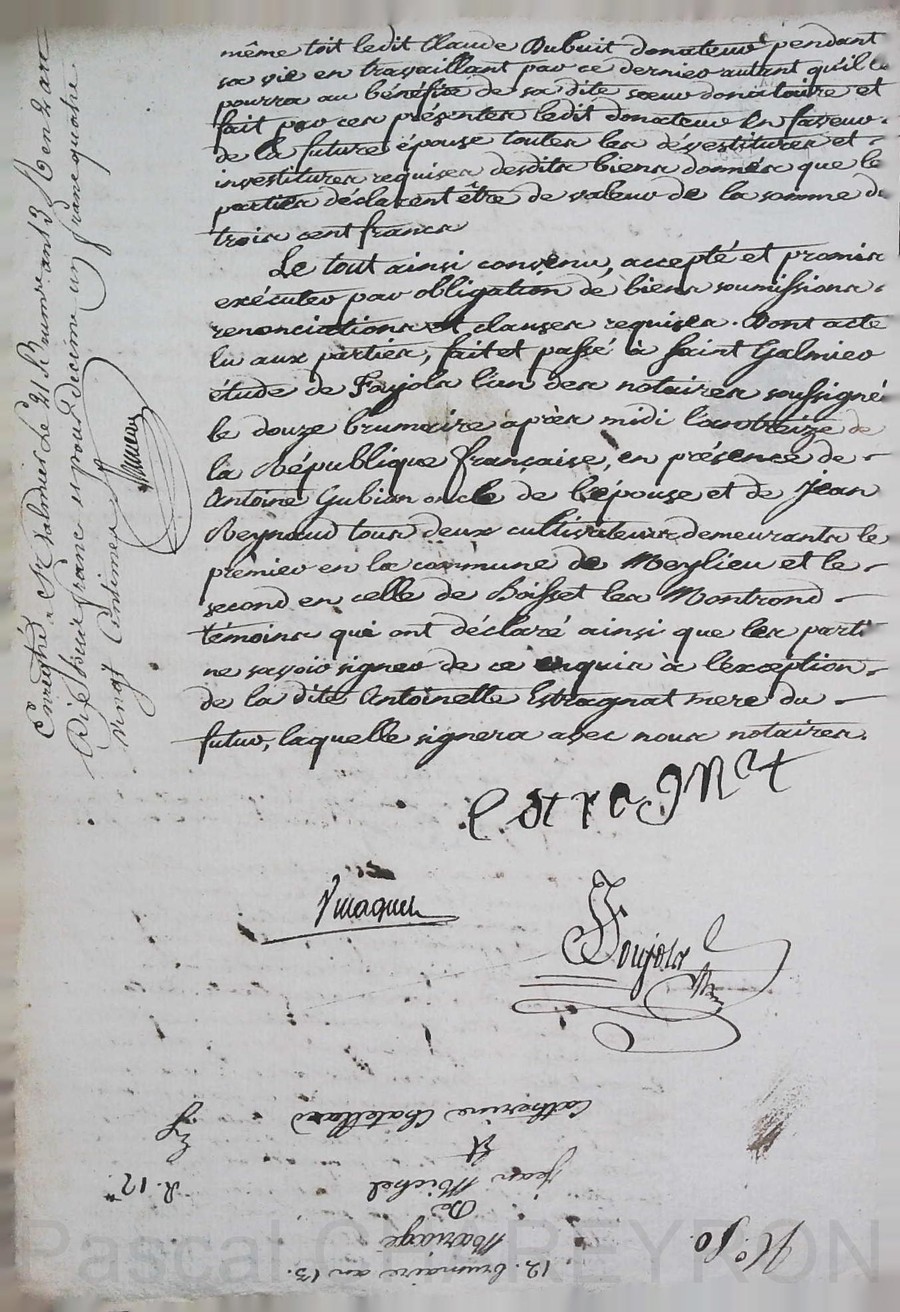 même toit ledit Claude Dubuit donateur pendant
sa vie en travaillant par ce dernier autant qu'il le
pourra au bénéfice de sa dite sœur donataire et
fait par ces présentes ledit donateur en faveur
de la future épouse toutes les dévestitures et
investitures requises desdits biens donnés que les
parties déclarent être de valeur de la somme de
trois cent francs
Le tout ainsi convenu, accepté et promis
exécuter par obligation de biens soumissions
renonciations et clauses requises. Dont acte
lu aux parties, fait et passé à Saint Galmier
étude de Foujols l'un des notaires soussigné
le douze brumaire après midi l'an treize de
la République française, en présence de
Antoine Gubian oncle de l'épouse et de Jean
Reynaud tous deux cultivateurs demeurants le
premier en la commune de Meylieu et le
second en celle de Boisset les Montrond
témoins qui ont déclaré ainsi que les parti
ne savoir signer de ce enquis à l'exception
de la dite Antoinette Estragnat mere du
futur, laquelle signera avec nous notaires.
estragnat
Foujols
Enregistré à St Galmier le 21 Brumaire an 13
Dix huit franc et pour decime un franc quatre
vingt centimes
12. brumaire an 13.
Mariage
De
Jean Michel
Et
Catherine Chatellard
N.º 50.
R. 12.
Pascal CHAREYRON